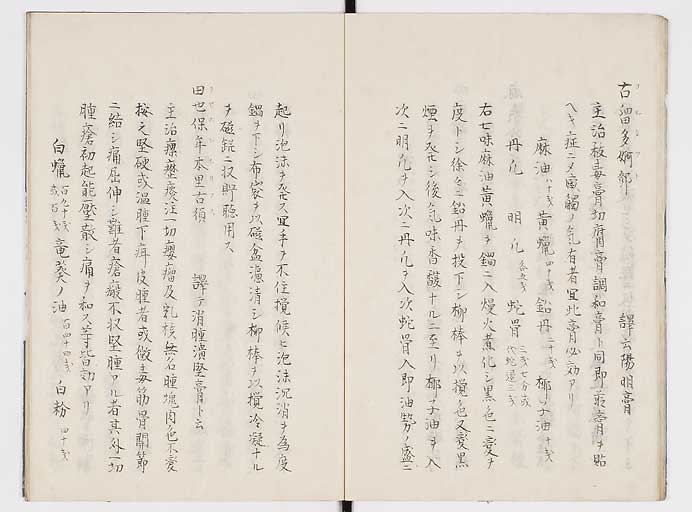 古留多婀都　譯云陽明膏
主治敷毒膏切腐膏調和膏ト同即前膏ヲ貼
ヘキ症ニメ＿觸ノ氣有者宜此膏必効アリ
麻油八十戔 黄蠟四十戔 鉛丹二十戔 椰子油十戔
丹凡　明凡各五戔 蛇骨三戔七分或代蛇退三戔
右七味麻油黄蠟ヲ鍋ニ入熳火煮化シ黒色ニ変ヲ
度トシ徐々ニ鉛丹ヲ投下シ柳棒ヲ以攪色又変黒
煙ヲ発セシ後気味香馥ナルニ至リ椰子油ヲ入
次ニ明凡ヲ入次ニ丹凡ヲ入次蛇骨入即油勢ノ盛ニ
起リ泡沫ヲ発ス宜手ヲ不住攪候ヒ泡沫沉消ヲ為度
鍋ヲ下シ布帛ヲ以磁盆濾清シ柳棒ヲ以攪冷凝ナル
ヲ磁鋌ニ収貯聴用ス
田也保牟本里古須　譯テ消腫潰堅膏ト云
主治瘰癧痰注一切癭瘤及乳核無名腫塊肉色不変
按之堅硬或温腫下疳皮腫者或黴毒筋骨關節
ニ結シ痛屈伸シ難者瘡癤不収堅腫アル者其外一切
腫瘡初起能壓散シ痛ヲ和ス等皆効アリ
白蠟百九十戔或百戔 竜葵ノ油百四十四戔 白粉四十戔